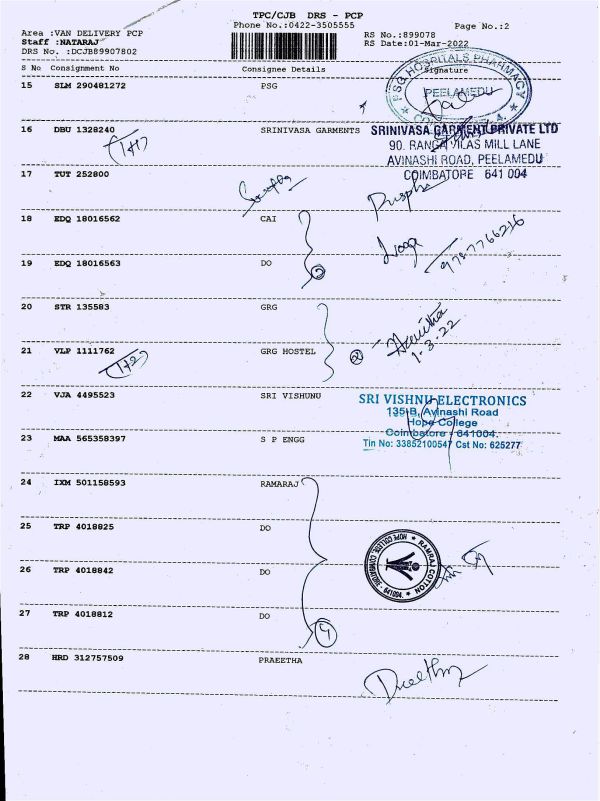 TPC/CJB DRS - PCP
Phone No.:0422-3505555
Page No.:2
Area :VAN DELIVERY PCP
RS No.:899078
Staff :NATARAJ
RS Date:01-Mar-2022
DRS No. :DCJB89907802
S No Consignment No Consignee Details Signature
15 SLM 290481272 PSG
PSG HOSPITALS PHARMACY
PEELAMEDU
16 DBU 1328240 SRINIVASA GARMENTS
(1+1)
SRINIVASA GARMENT PRIVATE LTD
90. RANGA VILAS MILL LANE
AVINASHI ROAD, PEELAMEDU
COIMBATORE 641 004
17 TUT 252800
Puspha
18 EDQ 18016562 CAI
9787766216
19 EDQ 18016563 DO
2
20 STR 135583 GRG
21 VLP 1111762 GRG HOSTEL
(1+2)
2
1-3-22
22 VJA 4495523 SRI VISHUNU
SRI VISHNU ELECTRONICS
135-B, Avinashi Road
Hope College
Coimbatore - 641004.
Tin No: 33852100547 Cst No: 625277
23 MAA 565358397 S P ENGG
24 IXM 501158593 RAMARAJ
25 TRP 4018825 DO
26 TRP 4018842 DO
RAMRAJ COTTON
HOPE COLLEGE, COIMBATORE - 641004.
27 TRP 4018812 DO
4
28 HRD 312757509 PRAEETHA